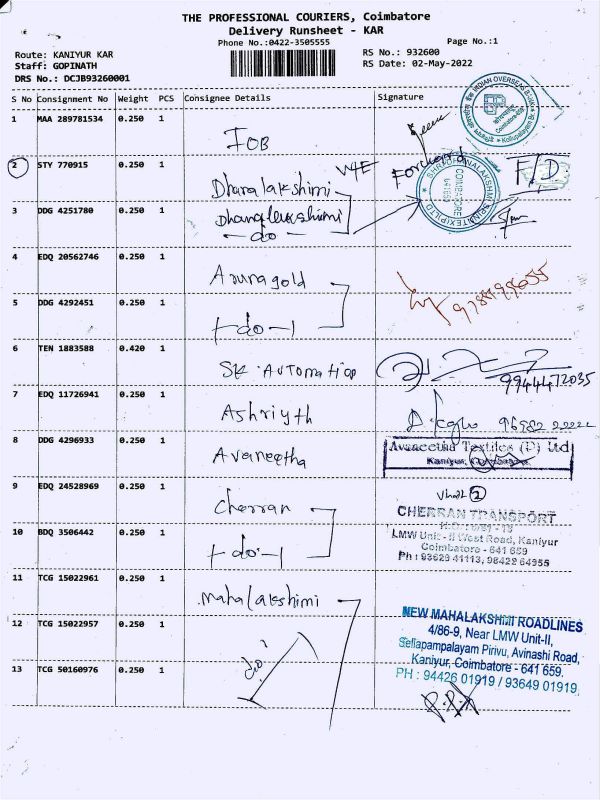 THE PROFESSIONAL COURIERS, Coimbatore
Delivery Runsheet - KAR
Phone No.:0422-3505555
Page No.:1
Route: KANIYUR KAR
Staff: GOPINATH
DRS No.: DCJB93260001
RS No.: 932600
RS Date: 02-May-2022
S No Consignment No Weight PCS Consignee Details Signature
1 MAA 289781534 0.250 1 IOB
INDIAN OVERSEAS BANK
2 STY 770915 0.250 1 Dharalakshimi
F/D.
3 DDG 4251780 0.250 1
do
COIMBATORE
641659
4 EDQ 20562746 0.250 1 Arunagold
5 DDG 4292451 0.250 1 do
6 TEN 1883588 0.420 1 SK. AUTOMATION
9944472035
7 EDQ 11726941 0.250 1 Ashriyth
8 DDG 4296933 0.250 1 Avaneetha
Avaneetha Textiles (P) Ltd
Kaniyur, Coimbatore.
9 EDQ 24528969 0.250 1 cherran
CHERRAN TRANSPORT
10 BDQ 3506442 0.250 1 do
LMW Unit - II West Road, Kaniyur
Coimbatore - 641 659
Ph : 93629 41113, 98422 64955
11 TCG 15022961 0.250 1 mahalakshimi
12 TCG 15022957 0.250 1
13 TCG 50160976 0.250 1 do
NEW MAHALAKSHMI ROADLINES
4/86-9, Near LMW Unit-II,
Sellapampalayam Pirivu, Avinashi Road,
Kaniyur, Coimbatore - 641 659.
PH : 94426 01919 / 93649 01919